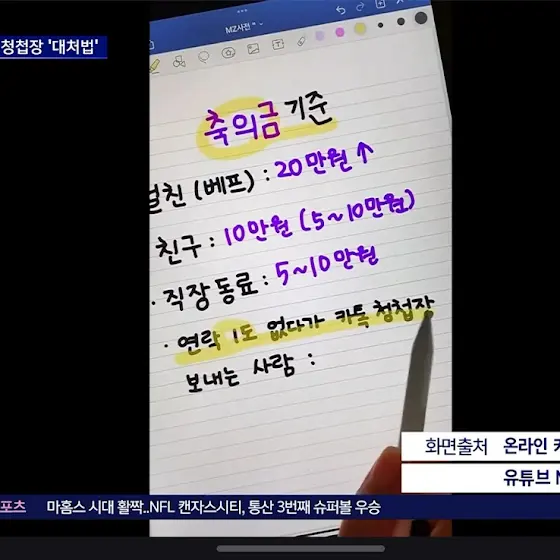 청첩장 '대처법'
MZ사전
축의금 기준
절친 (베프) : 20만원 ↑
친구 : 10만원 (5~10만원)
· 직장 동료 : 5~10만원
· 연락 1도 없다가 카톡 청첩장
보내는 사람 :
화면출처 온라인
유튜브
포츠 마홈스 시대 활짝..NFL 캔자스시티, 통산 3번째 슈퍼볼 우승